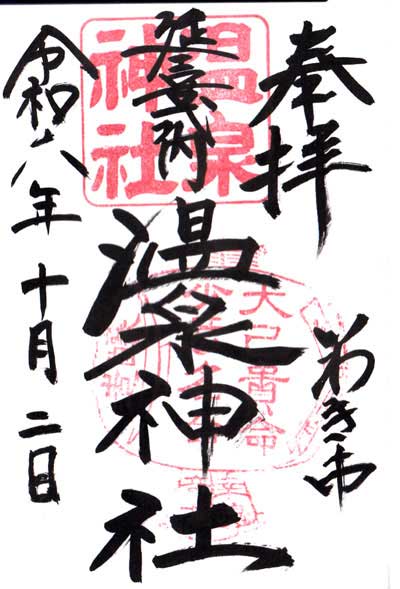 奉拝
いわき市
延喜式内
温泉神社
令和六年十月二日
温泉
神社
大己貴命